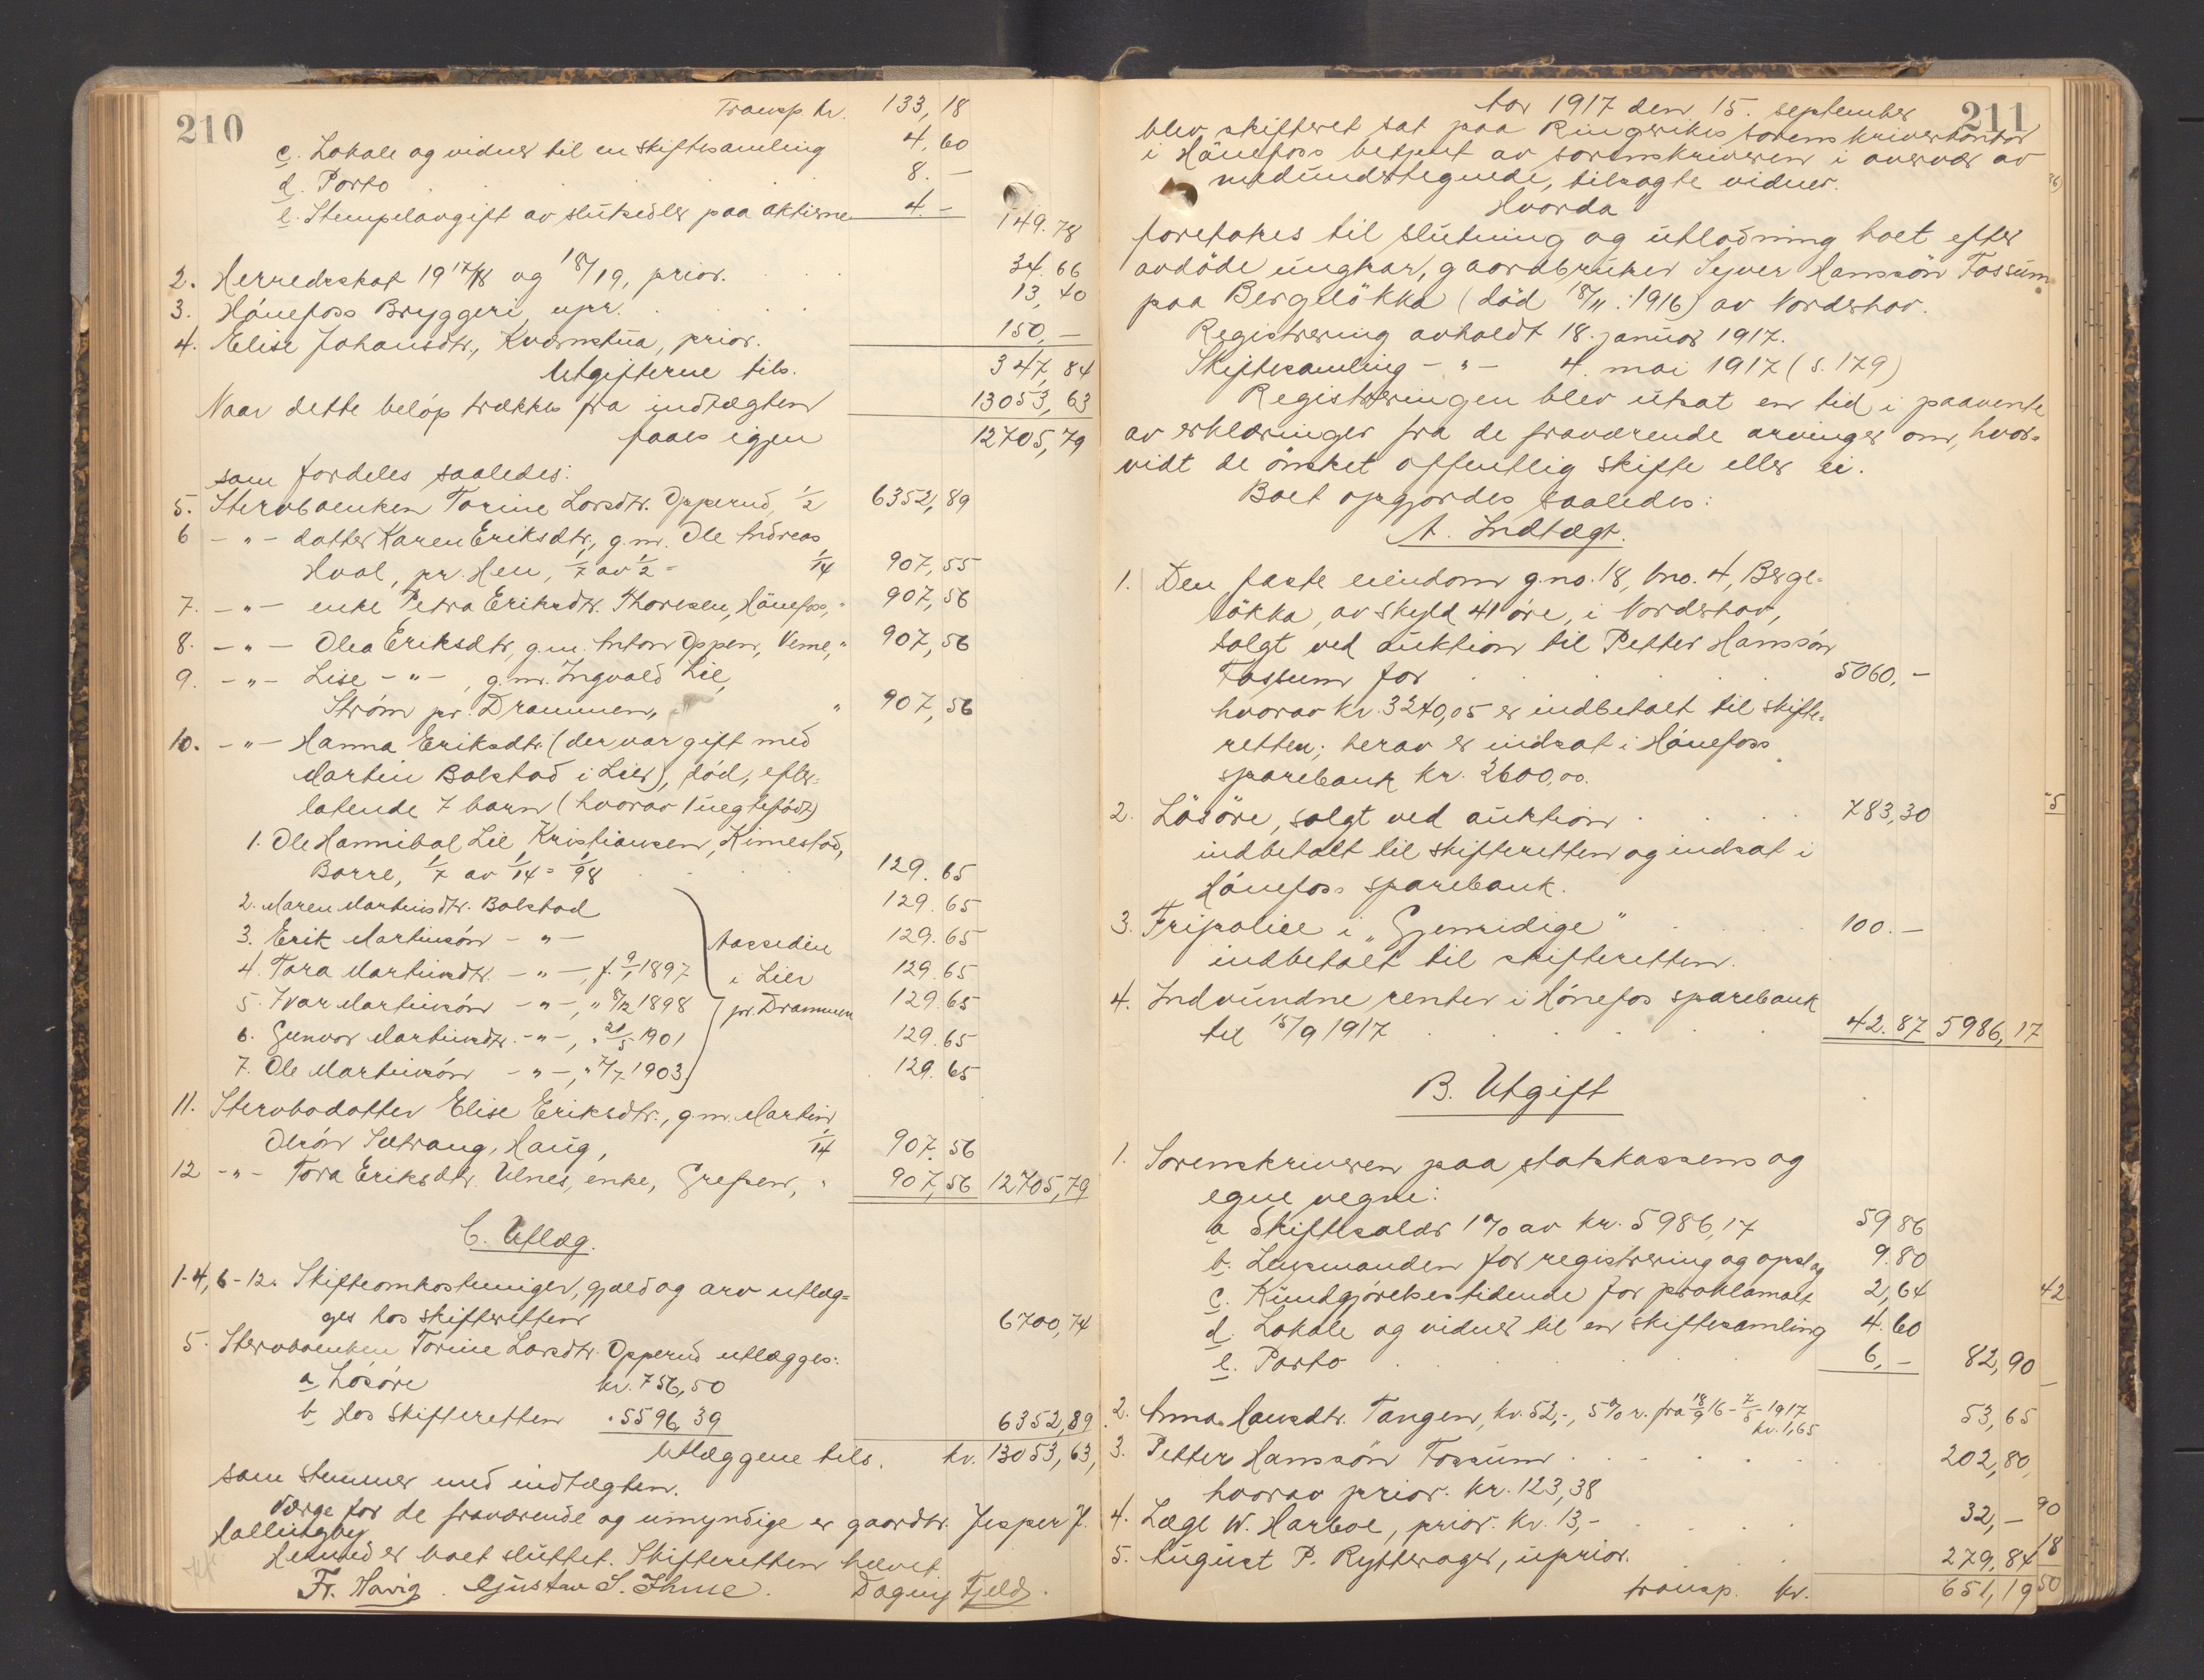 210
Transp. kr. 133,18
c. Lokale og vidner til en skiftesamling 4,60
d. Porto 8.-
e. Stempelavgift av slutsedler paa aktierne 4.- 149.78
2. Herredsskat 1917/18 og 18/19, prior. 34.66
3. Hønefoss Bryggeri, upr. 13,40
4. Elise Johansdtr., Kværnstua, prior. 150,-
Utgifterne tils. 347,84
Naar dette beløp trækkes fra indtægten 13053,63
faaes igjen 12705,79
som fordeles saaledes:
5. Stervboenken Torine Larsdtr. Opperud, 1/2 6352,89
6 -"- datter Karen Eriksdtr., g.m. Ole Andreas
Hval, pr. Hen, 1/7 av 1/2 = 1/14 907,55
7. -"- enke Petra Eriksdtr. Thoresen, Hönefoss, " 907,56
8. -"- Olea Eriksdtr, g.m. Anton Oppen, Veme, " 907,56
9. -"- Lise -"-, g.m. Ingvald Lie,
Strøm pr. Drammen, " 907,56
10. -"- Hanna Eriksdtr. (der var gift med
Martin Bolstad i Lier), død, efter-
latende 7 barn (hvorav 1 uegtefødt)
1. Ole Hannibal Lie Kristiansen, Kimestad,
Borre, 1/7 av 1/14 = 1/98 129.65
2. Maren Martinsdtr. Bolstad 129.65
3. Erik Martinsön -"- 129.65
4. Tora Martinsdtr. -"-, f. 9/1 1897 129.65
5. Ivar Martinsön -"-, " 8/12 1898 129.65
6. Gunvor Martinsdtr. -"-, " 21/5 1901 129.65
7. Ole Martinsön -"-, " 7/7 1903 129.65
i Lier
pr. Drammen
11. Stervbodatter Elise Eriksdtr., g.m. Martin
Olsön Sætrang, Haug, 1/14 907.56
12 -"- Tora Eriksdtr. Ulnes, enke, Grefsen, " 907,56 12705,79
C. Utlæg.
1-4, 6-12. Skifteomkostninger, gjæld og arv utlæg-
ges hos skifteretten 6700,74
5. Stervboenken Torine Larsdtr. Opperud utlægges:
a Løsøre kr. 756,50
b Hos Skifteretten " 5596,39 6352,89
Utlæggene tils. kr. 13053,63,
som stemmer med indtægten.
Værge for de fraværende og umyndige er gaardbr. Jesper J.
Hallingby
Hermed er boet sluttet. Skifteretten hævet
Fr. Havig. Gjustav S. Ihme. Dagny Fjeld.
211
Aar 1917 den 15. september
blev skifteret sat paa Ringerikes sorenskriverkontor
i Hönefoss betjent av sorenskriveren i overvær av
medundertegnede, tilsagte vidner.
Hvorda
foretokes til slutning og utlodning boet efter
avdöde ungkar, gaardbruker Syver Hanssön Fossum
paa Bergelökka (död 18/11 1916) av Norderhov.
Registrering avholdt 18. januar 1917.
Skiftesamling -"- 4. mai 1917 (s. 179)
Registreringen blev utsat en tid i paavente
av erklæringer fra de fraværende arvinger om, hvor-
vidt de ønsket offentlig skifte eller ei.
Boet opgjordes saaledes:
A. Indtægt.
1. Den faste eiendom g.no. 18, bno. 4, Berge-
lökka, av skyld 41 øre, i Norderhov,
solgt ved auktion til Petter Hanssön
Fossum for 5060.-
hvorav kr. 3240,05 er indbetalt til skifte-
retten; herav er indsat i Hönefoss
sparebank kr. 2600,00.
2. Lösöre, solgt ved auktion 783,30
indbetalt til skifteretten og indsat i
Hönefoss sparebank.
3. Fripolise i "Gjensidige" 100.-
indbetalt til skifteretten.
4. Indvundne renter i Hönefos sparebank
til 15/9 1917 42.87 5986,17
B. Utgift
1. Sorenskriveren paa statskassens og
egne vegne:
a Skiftesalær 1% av kr. 5986,17 59,86
b. Lensmanden for registrering og opslag 9.80
c. Kundgjørelsestidende for proklamaet 2,64
d. Lokale og vidner til en skiftesamling 4.60
e. Porto 6,- 82,90
2. Anna Hansdtr. Tangen, kr. 52,-, 5% r. fra 18/9 16 - 7/5 1917
kr. 1,65 53,65
3. Petter Hanssön Fossum 202,80
hvorav prior. kr. 123,38
4. Læge W. Harboe, prior. kr. 13,- 32,-
5. August P. Rytterager, uprior. 279,84
transp. kr. 651,19